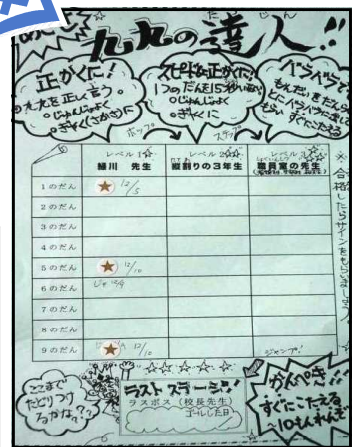 めざせ
九九の達人!!
正かくに!
九九を正しく言う。
・じゅんじょよく
・ぎゃく(さかさ)に
スピード&正かくに!
1つのだんを15秒いない
・じゅんじょよく
・ぎゃくに
バラバラで
もんだいをだして
もらい すぐこたえる
ホップ
ステップ
レベル1
緑川 先生
レベル2
縦割りの3年生
レベル3
職員室の先生
1のだん
12/5
2のだん
3のだん
4のだん
5のだん
12/10
6のだん
7のだん
8のだん
9のだん
12/12
ジャンプ!
※合格したらサインをもらいましょう
ここまで
たどりつけ
るかな??
ラスト ステージ!!
ラスボス(校長先生)
ゴールした日
かんぺき!
すぐにこたえる